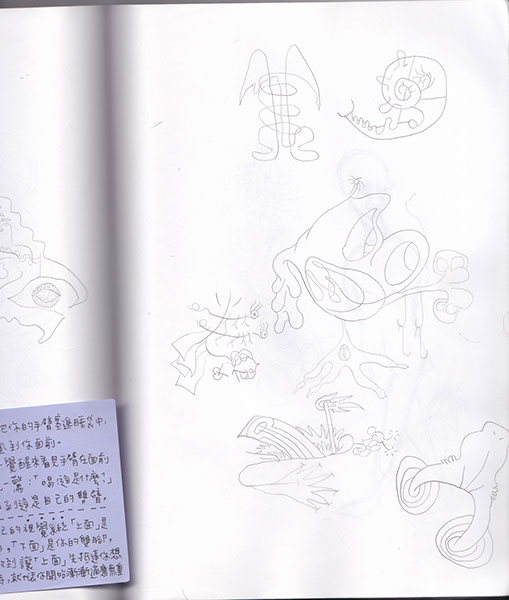 把你的手臂塞進睡袋中,
到你面前。
覺醒來看見手臂在面前
驚:「喝!這是什麼?」
到這是自己的雙臂
己的視覺系統「上面」是
,「下面」是你的雙腳,
到讓「上面」先抵達你想
,就代表你開始漸漸適應無重